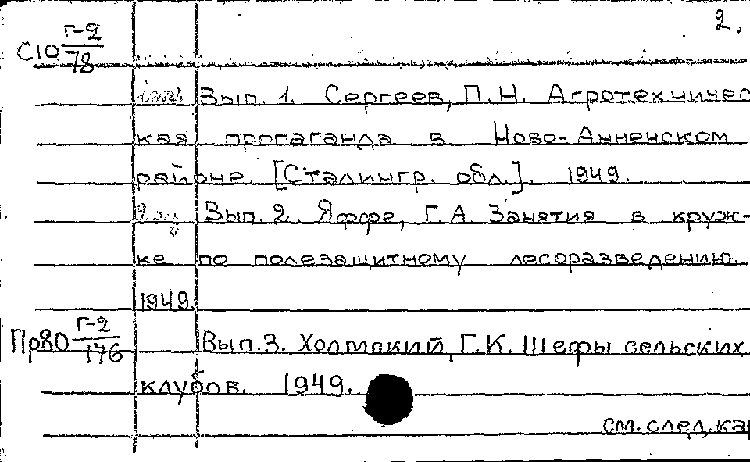 2.
С10 Г-2/78
Вып. 1. Сергеев, П.Н. Агротехничес
кая пропаганда в Ново-Анненском
районе. [Сталингр. обл.]. 1949.
Вып. 2. Яффе, Г.А. Занятия в круж-
ке по полезащитному лесоразведению.
1949.
Пр80 Г-2/176
Вып. 3. Холмский, Г.К. Шефы сельских
клубов. 1949.
см. след. кар